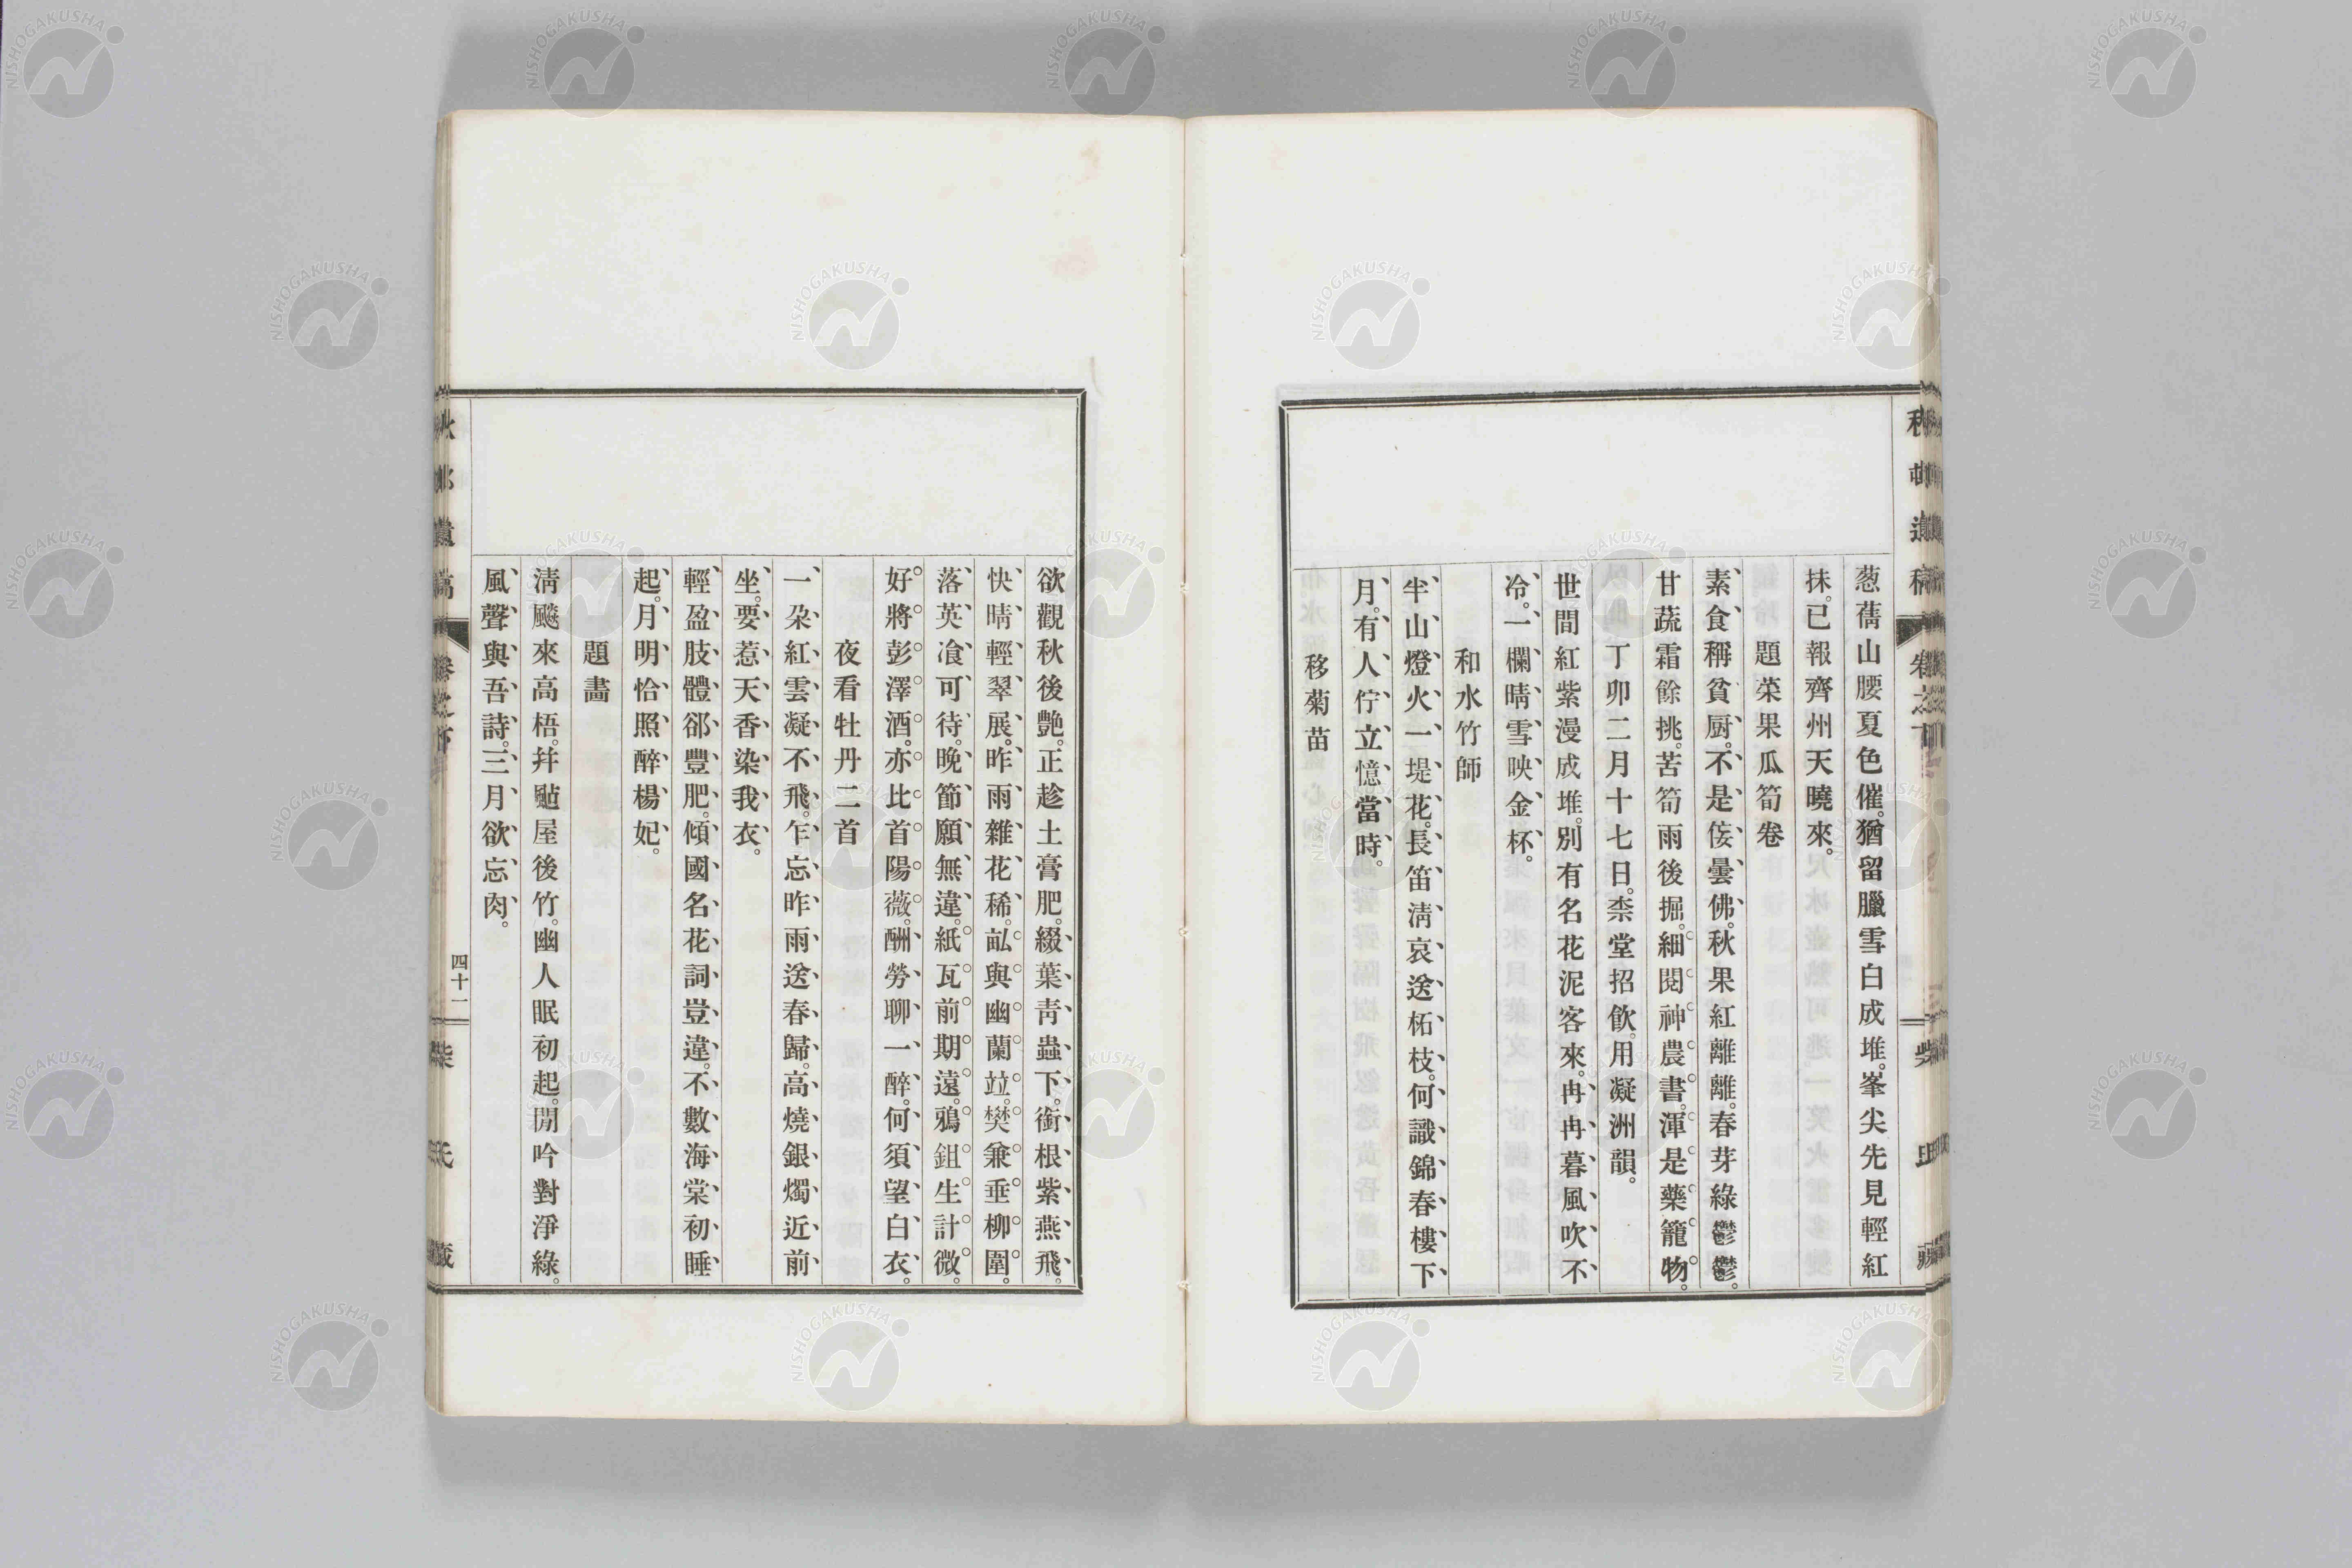 葱蒨山腰夏色催。猶留臘雪白成堆。峯尖先見輕紅
抹。已報齊州天曉來。
題菜果瓜筍卷
素食稱貧厨。不是侫曇佛。秋果紅離離。春芽綠鬱鬱。
甘蔬霜餘挑。苦筍雨後掘。細閱神農書。渾是藥籠物。
丁卯二月十七日。柰堂招飮。用凝洲韻。
世間紅紫漫成堆。別有名花泥客來。冉冉暮風吹不
冷。一欄晴雪映金杯。
和水竹師
半山燈火一堤花。長笛淸哀送柘枝。何識錦春樓下
月。有人佇立憶當時。
移菊苗
欲觀秋後艷。正趁土膏肥。綴葉靑蟲下。銜根紫燕飛。
快晴輕翠展。昨雨雜花稀。畆與幽蘭竝。樊兼垂柳圍。
落英飡可待。晩節願無違。紙瓦前期遠。鴉鉏生計微。
好將彭澤酒。亦比首陽薇。酬勞聊一醉。何須望白衣。
夜看牡丹二首
一朶紅雲凝不飛。乍忘昨雨送春歸。高燒銀燭近前
坐。要惹天香染我衣。
輕盈肢體郤豐肥。傾國名花詞豈違。不數海棠初睡
起。月明恰照醉楊妃。
題畵
淸飈來高梧。幷颭屋後竹。幽人眠初起。閒吟對淨綠。
風聲與吾詩。三月欲忘肉。
四十二